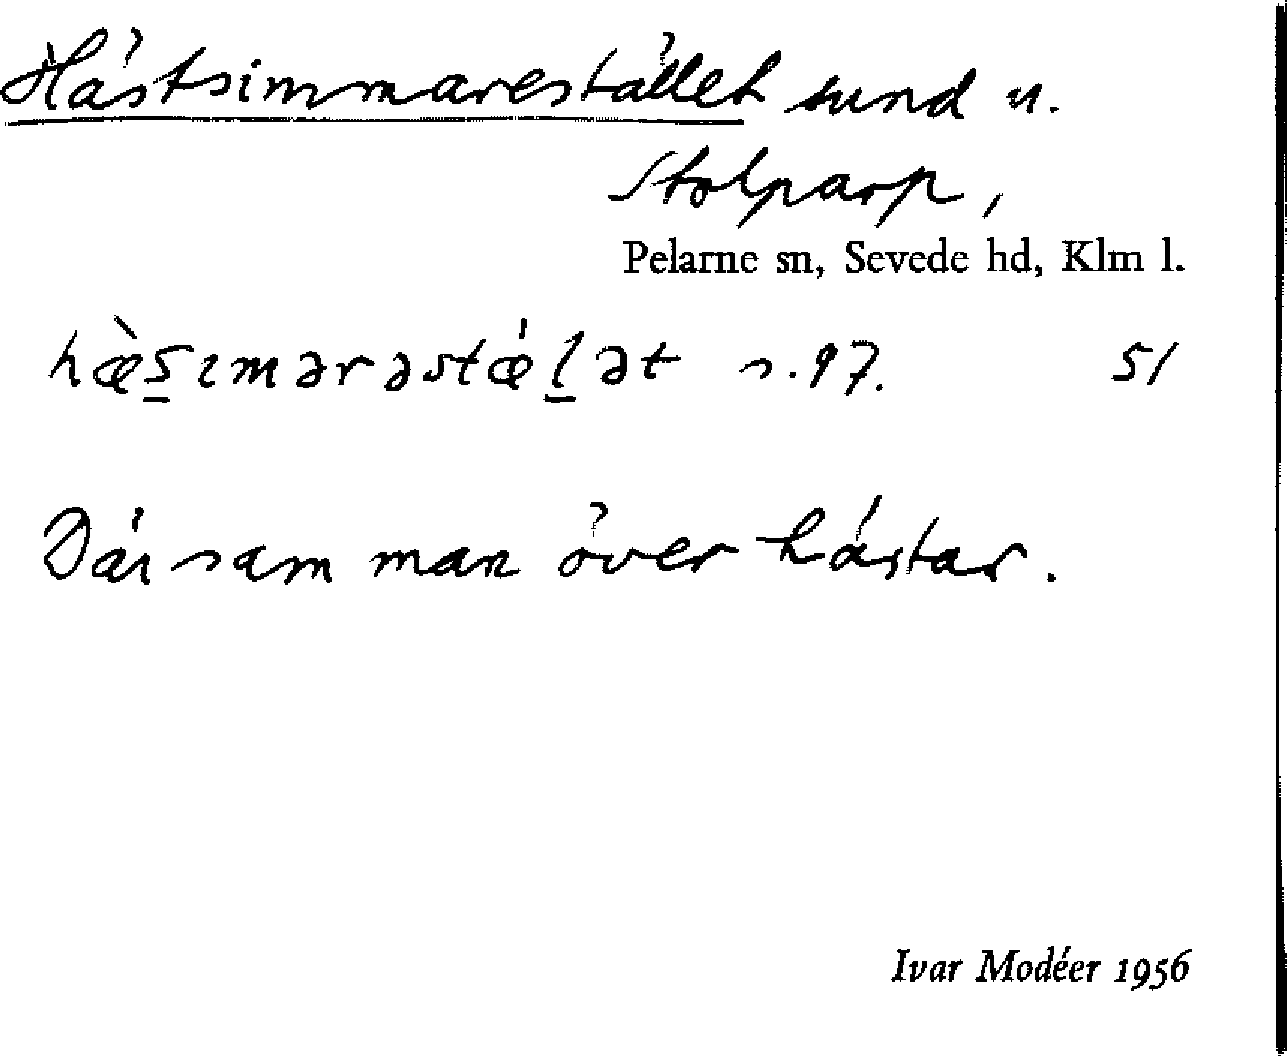 Hästsimmarestället sund u.
Stolparp,
Pelarne sn, Sevede hd, Klm l.
hæ̀s̲ımərəstǽl̲ət s. 97. 51
Där sam man över hästar.
Ivar Modéer 1956